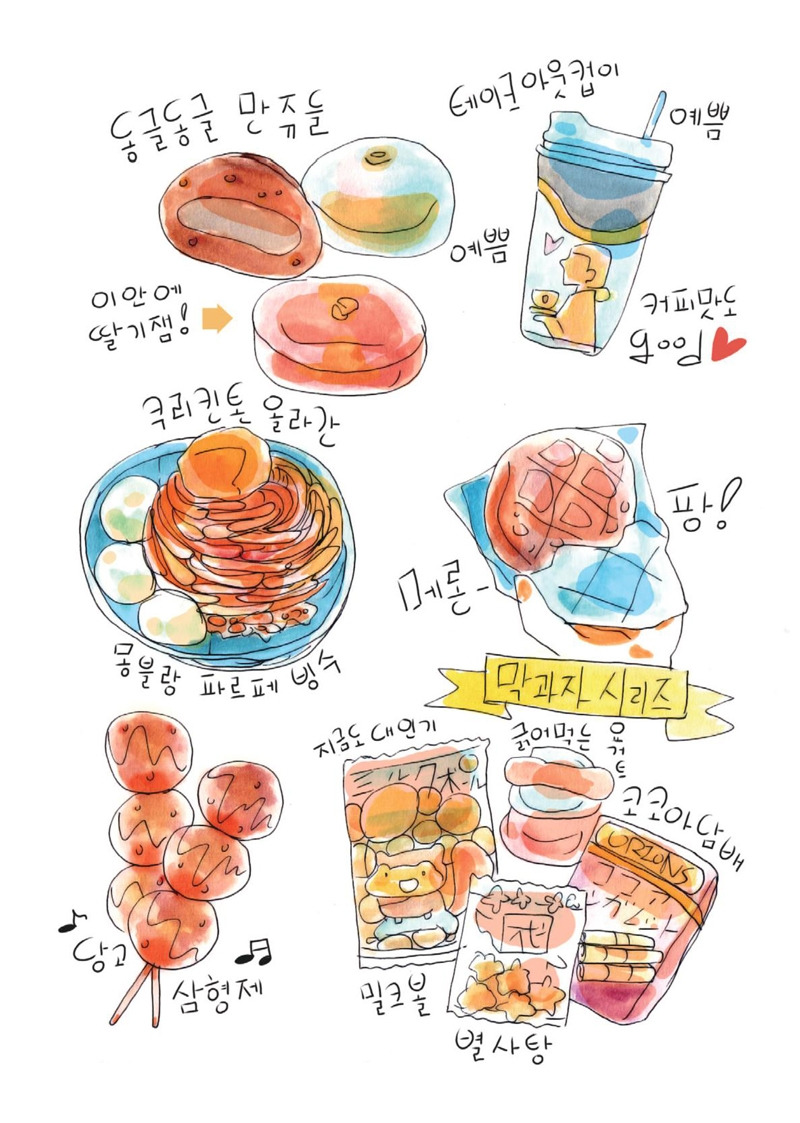 동글동글 만쥬들
테이크아웃컵이
예쁨
예쁨
이안에
딸기잼!
커피맛도
go이임
쿠리킨톤 올라간
팡!
메론-
몽블랑 파르페 빙수
막과자 시리즈
지금도 대인기
긁어먹는 요거트
코코아담배
ミルクボール
ORIONS
ココア
당고
삼형제
밀크볼
별사탕